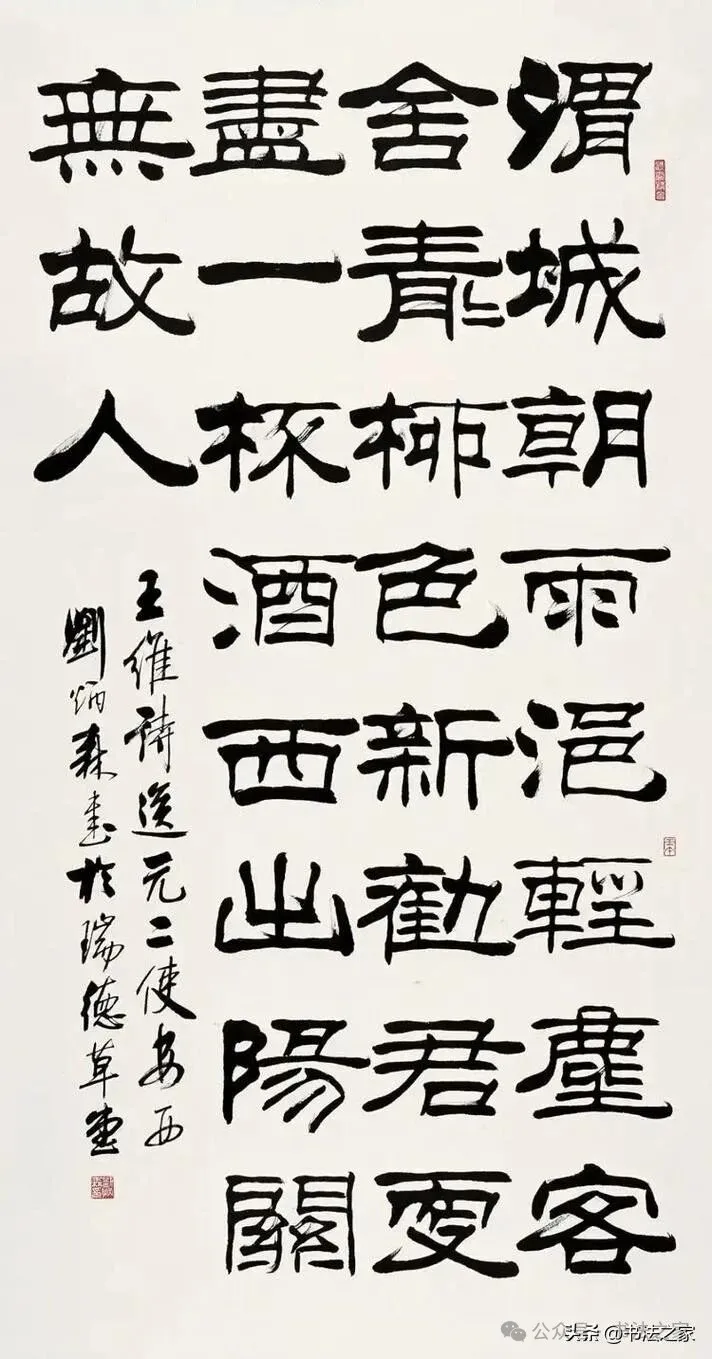 渭城朝雨浥輕塵客
舍青〻柳色新勸君更
盡一杯酒西出陽關
無故人
王維詩送元二使安西
劉炳森書於瑞德草堂
头条 @书法之家